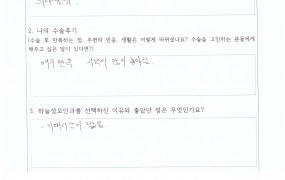 2. 나의 수술후기
(수술 후 만족하는 점, 주변의 반응, 생활은 어떻게 바뀌셨나요? 수술을 고민하는 분들에게
해주고 싶은 말이 있다면?)
매우 만족
3. 하늘성모안과를 선택하신 이유와 좋았던 점은 무엇인가요?